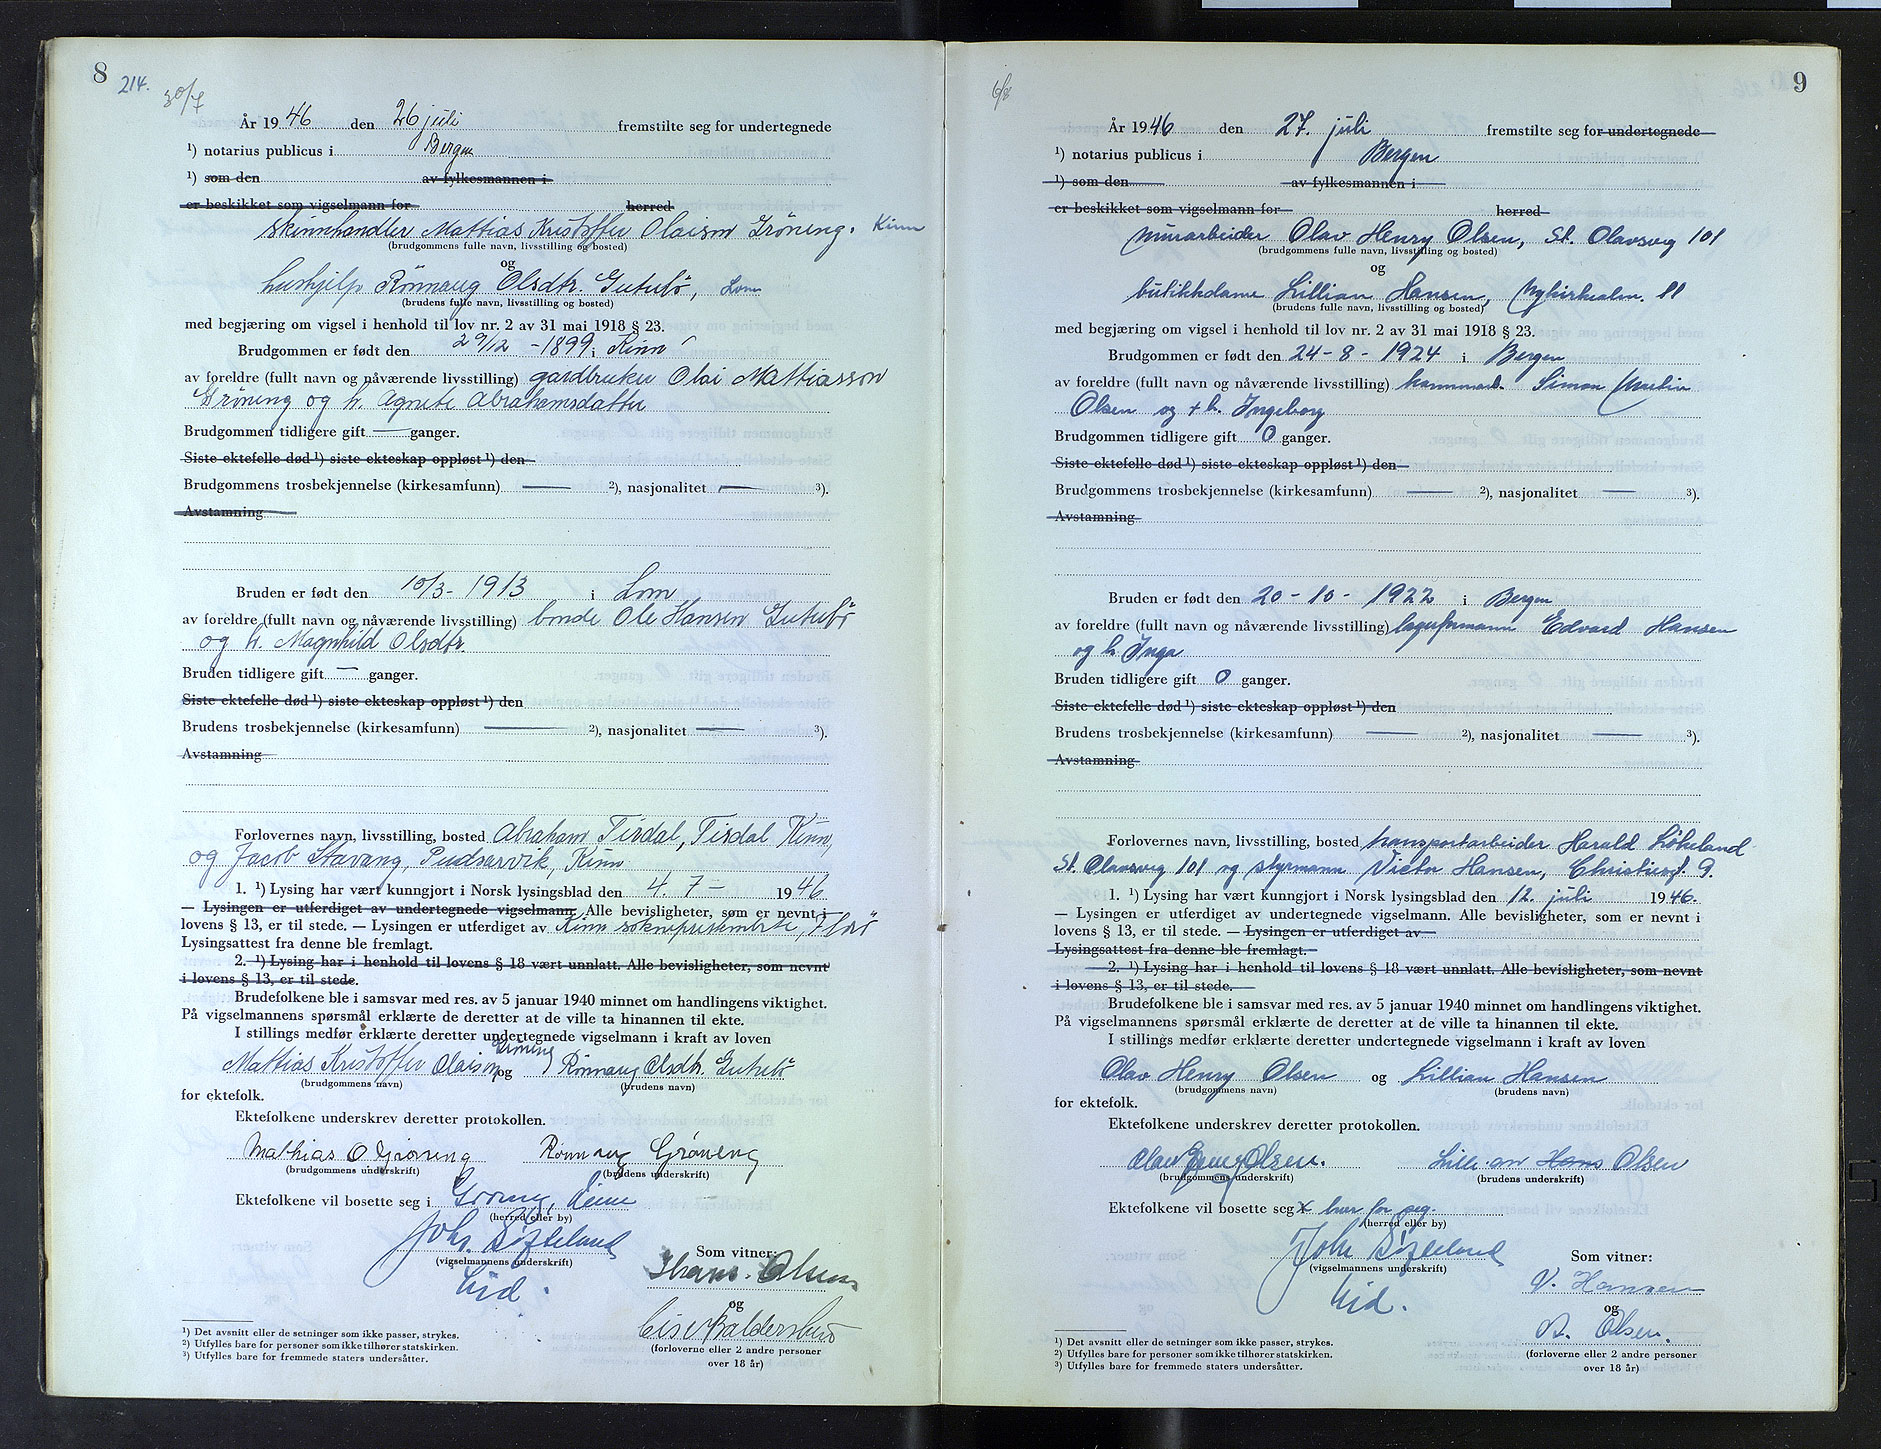 8
214.
30/7
År 1946 den 26 juli fremstilte seg for undertegnede
¹) notarius publicus i Bergen
¹) som den av fylkesmannen i
er beskikket som vigselmann for herred
skinnhandler Mattias Kristoffer Olaison Grøning. Kinn
(brudgommens fulle navn, livsstilling og bosted)
og
hushjelp Rönnaug Olsdtr. Gutubö, Lom
(brudens fulle navn, livsstilling og bosted)
med begjæring om vigsel i henhold til lov nr. 2 av 31 mai 1918 § 23.
Brudgommen er født den 29/12 - 1899 i Kinn
av foreldre (fullt navn og nåværende livsstilling) gardbruker Olai Mattiasson
Grøning og h. Agnete Abrahamsdatter
Brudgommen tidligere gift — ganger.
Siste ektefelle død ¹) siste ekteskap oppløst ¹) den
Brudgommens trosbekjennelse (kirkesamfunn) — ²), nasjonalitet — ³).
Avstamning
Bruden er født den 10/3 - 1913 i Lom
av foreldre (fullt navn og nåværende livsstilling) bonde Ole Hansen Gutubö
og h. Magnhild Olsdtr.
Bruden tidligere gift — ganger.
Siste ektefelle død ¹) siste ekteskap oppløst ¹) den
Brudens trosbekjennelse (kirkesamfunn) — ²), nasjonalitet — ³).
Avstamning
Forlovernes navn, livsstilling, bosted Abraham Tirdal, Tirdal Kinn,
og Jacob Stavang, Kinn
1. ¹) Lysing har vært kunngjort i Norsk lysingsblad den 4. 7 - 1946
— Lysingen er utferdiget av undertegnede vigselmann. Alle bevisligheter, som er nevnt i
lovens § 13, er til stede. — Lysingen er utferdiget av Kinn sokneprestembete, Florö
Lysingsattest fra denne ble fremlagt.
2. ¹) Lysing har i henhold til lovens § 18 vært unnlatt. Alle bevisligheter, som nevnt
i lovens § 13, er til stede.
Brudefolkene ble i samsvar med res. av 5 januar 1940 minnet om handlingens viktighet.
På vigselmannens spørsmål erklærte de deretter at de ville ta hinannen til ekte.
I stillings medfør erklærte deretter undertegnede vigselmann i kraft av loven
Mattias Kristoffer Olaison Grøning og Rönnaug Olsdtr. Gutubö
(brudgommens navn) (brudens navn)
for ektefolk.
Ektefolkene underskrev deretter protokollen.
Mathias O Grøneng Rønnaug Grøneng
(brudgommens underskrift) (brudens underskrift)
Ektefolkene vil bosette seg i Grøning, Kinn
(herred eller by)
Joh. Softeland
(vigselmannens underskrift)
Som vitner:
Olsen
og
(forloverne eller 2 andre personer
over 18 år)
¹) Det avsnitt eller de setninger som ikke passer, strykes.
²) Utfylles bare for personer som ikke tilhører statskirken.
³) Utfylles bare for fremmede staters undersåtter.
9
6/8
År 1946 den 27. juli fremstilte seg for undertegnede
¹) notarius publicus i Bergen
¹) som den av fylkesmannen i
er beskikket som vigselmann for herred
murarbeider Olav Henry Olsen, St. Olavsveg 101
(brudgommens fulle navn, livsstilling og bosted)
og
butikkdame Lillian Hansen, Nykirkealm. 11
(brudens fulle navn, livsstilling og bosted)
med begjæring om vigsel i henhold til lov nr. 2 av 31 mai 1918 § 23.
Brudgommen er født den 24 - 8 - 1924 i Bergen
av foreldre (fullt navn og nåværende livsstilling) Simon Martin
Olsen og + h. Ingeborg
Brudgommen tidligere gift 0 ganger.
Siste ektefelle død ¹) siste ekteskap oppløst ¹) den
Brudgommens trosbekjennelse (kirkesamfunn) — ²), nasjonalitet — ³).
Avstamning
Bruden er født den 20 - 10 - 1922 i Bergen
av foreldre (fullt navn og nåværende livsstilling) lagerformann Edvard Hansen
og h Inga
Bruden tidligere gift 0 ganger.
Siste ektefelle død ¹) siste ekteskap oppløst ¹) den
Brudens trosbekjennelse (kirkesamfunn) — ²), nasjonalitet — ³).
Avstamning
Forlovernes navn, livsstilling, bosted transportarbeider Harald Lökeland
St. Olavsveg 101 og styrmann Victor Hansen, Christiesgt. 9.
1. ¹) Lysing har vært kunngjort i Norsk lysingsblad den 12. juli 1946.
— Lysingen er utferdiget av undertegnede vigselmann. Alle bevisligheter, som er nevnt i
lovens § 13, er til stede. — Lysingen er utferdiget av
Lysingsattest fra denne ble fremlagt.
2. ¹) Lysing har i henhold til lovens § 18 vært unnlatt. Alle bevisligheter, som nevnt
i lovens § 13, er til stede.
Brudefolkene ble i samsvar med res. av 5 januar 1940 minnet om handlingens viktighet.
På vigselmannens spørsmål erklærte de deretter at de ville ta hinannen til ekte.
I stillings medfør erklærte deretter undertegnede vigselmann i kraft av loven
Olav Henry Olsen og Lillian Hansen
(brudgommens navn) (brudens navn)
for ektefolk.
Ektefolkene underskrev deretter protokollen.
Olav Henry Olsen. Lillian Hans Olsen
(brudgommens underskrift) (brudens underskrift)
Ektefolkene vil bosette seg i hver for seg.
(herred eller by)
Joh Softeland
(vigselmannens underskrift)
Som vitner:
V. Hansen
og
A. Olsen.
(forloverne eller 2 andre personer
over 18 år)
¹) Det avsnitt eller de setninger som ikke passer, strykes.
²) Utfylles bare for personer som ikke tilhører statskirken.
³) Utfylles bare for fremmede staters undersåtter.